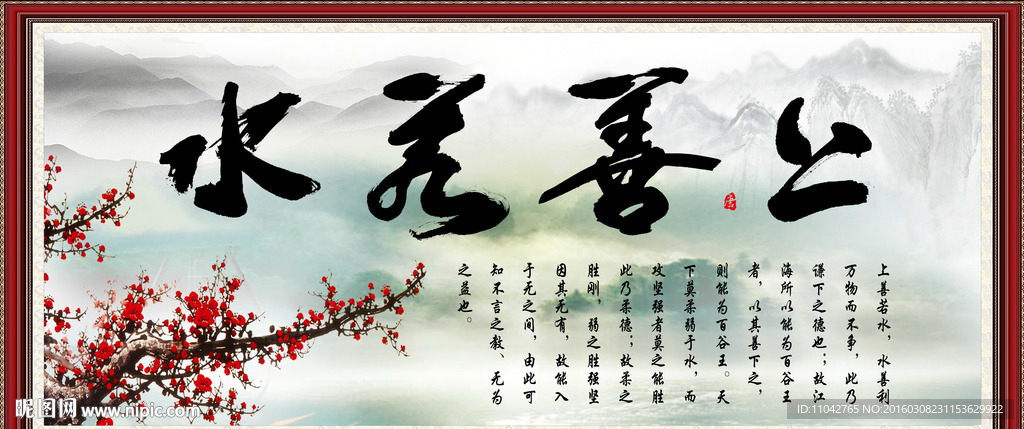 上善若水
上善若水，水善利
万物而不争，此乃
谦下之德也；故江
海所以能为百谷王
者，以其善下之，
则能为百谷王。天
下莫柔弱于水，而
攻坚强者莫之能胜
此乃柔德；故柔之
胜刚，弱之胜强坚
因其无有，故能入
于无之间，由此可
知不言之教、无为
之益也。
昵图网 www.nipic.com
ID:11042765 NO:20160308231153629922